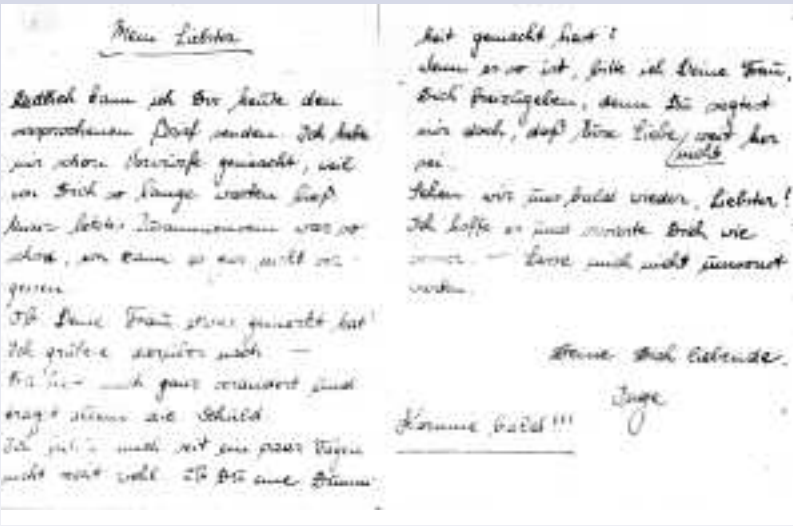 Mein Liebster
Endlich kann ich Dir heute den
versprochenen Brief senden. Ich habe
mir schon Vorwürfe gemacht, weil
ich Dich so lange warten ließ
Unser letztes Zusammensein war so
schön, ich kann es gar nicht ver-
gessen
Ob Deine Frau etwas gemerkt hat!
Ich grüble darüber nach —
ganz verändert und
die Schuld
Ich mich seit ein paar Tagen
nicht recht wohl. Ob Du eine Dumm
heit gemacht hast?
Wenn es so ist, bitte ich Deine Frau,
Dich freizugeben, denn Du sagtest
mir doch, daß Eure Liebe weit her
nicht
sei.
Sehen wir uns bald wieder, Liebster!
Ich hoffe es und erwarte Dich wie
immer. — Lasse mich nicht umsonst
warten.
Deine Dich liebende
Inge
Komme bald!!!